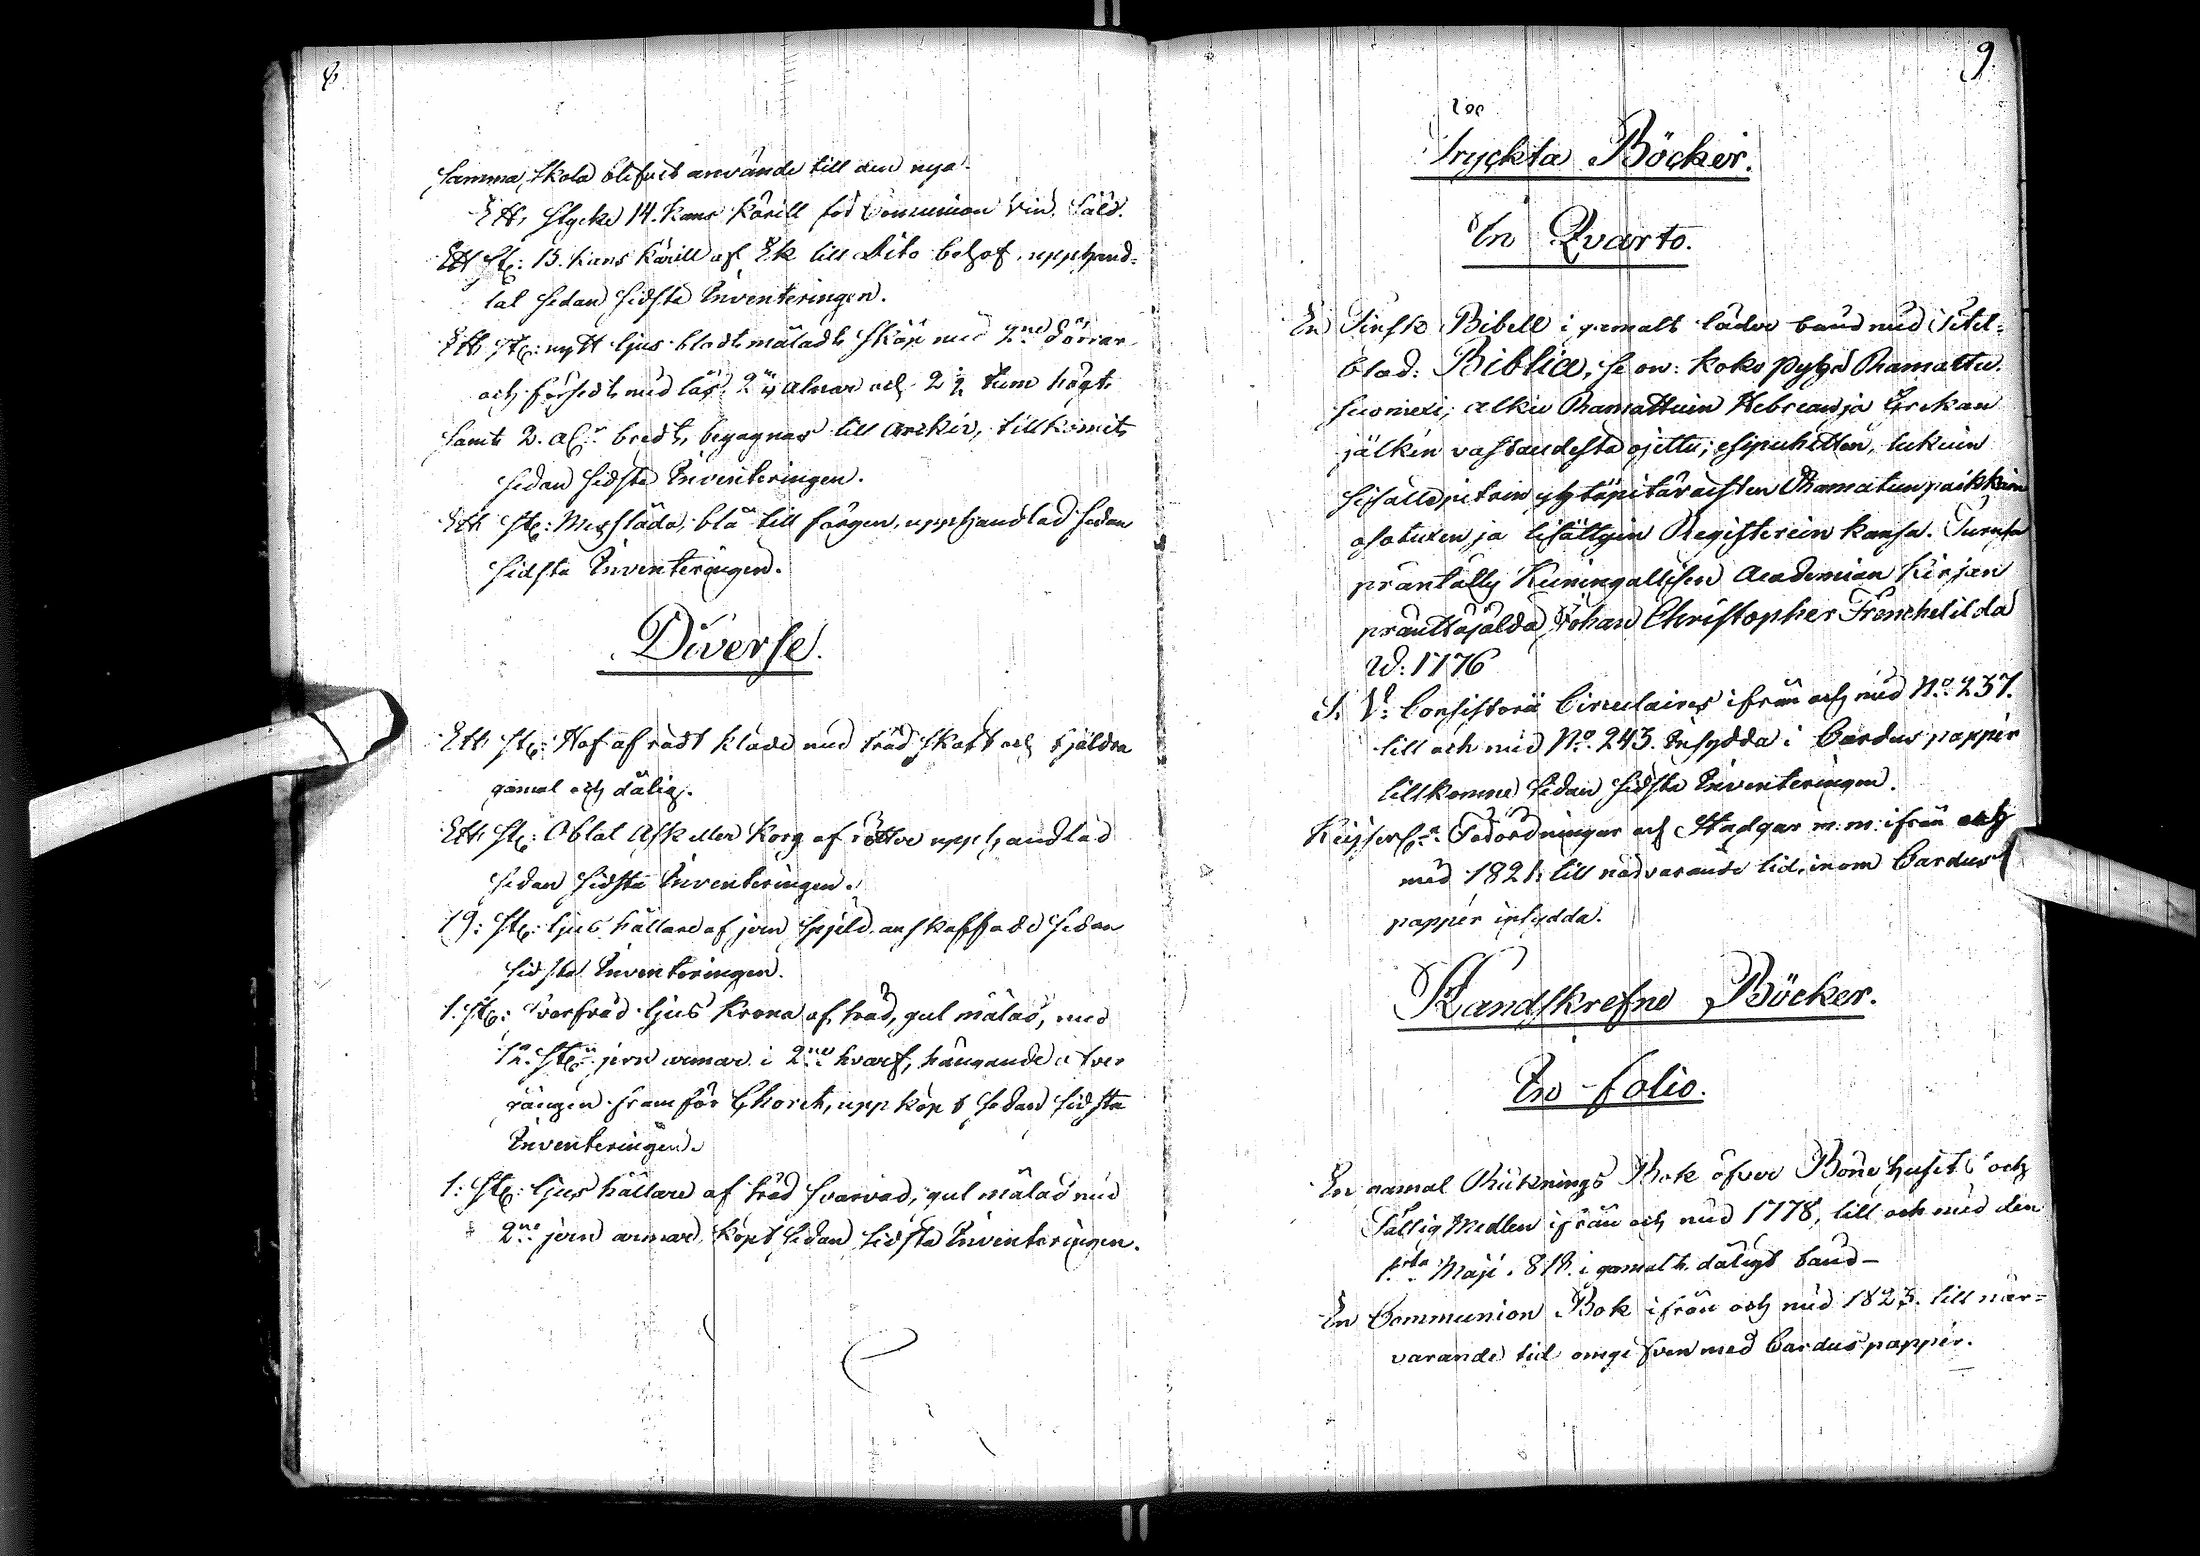 8.
samma skola blifvit använde till den nya.
Ett stycke 14. kans kärill för Communion Vin. Såld.
Ett st: 15. kans kärill af Ek till Dito behof, upphand=
lat sedan sidsta Inventeringen.
Ett st: nytt ljus blått måladt skåp med 2ne dörrar
och försedt med lås, 2 alnar och 2 1/2 tum högt,
samt 2. al: bredt, begagnas till arckiv, tillkomit
sedan sidsta Inventeringen.
Ett st: Messläda, blå till färgen, upphandlad sedan
sidsta Inventeringen.
Diverse.
Ett st: Hof af rödt kläde med träd skaft och
gamal och dålig.
Ett st: Oblat Ask eller Korg af rötter upphandlad
sedan sidsta Inventeringen.
19: st: ljus hållare af jern spjeld, anskaffade sedan
sidsta Inventeringen.
1. st: svarfvad ljus krona af träd, gul målad, med
12. st: jern armar i 2ne hvarf, hängande i tver
gången framför Choret, uppköpt sedan sidsta
Inventeringen.
1: st: ljus hållare af träd svarvad, gul målad med
2ne jern armar, köpt sedan sidsta Inventeringen.
9.
Tryckta Böcker.
In Qvarto.
En Finsk Bibell i gamalt läder band med Titel=
blad: Biblia, se on: Koko Pyhä Ramattu.
suomexi; alku Ramattuin Hebrean ja Grekan
jälken vastaudesta ojettu; esipuhetten,
Ramatun paikkain
osotuxen, ja lisättyin Registerein kansa. Turusa
präntätty Kuningallisen Academian Kirjan
pränttäjäldä, Johan Christopher Frenckelilda
W: 1776
S. V: Consistorii Circulairer ifrån och med No. 237.
till och med No. 243. Insydda i Cardus papper
tillkomne sedan sidsta Inventeringen.
Keijserl: Förordningar och Stadgar m: m: ifrån och
med 1821. till närvarande tid, inom Cardus
papper insydda.
Handskrefne Böcker.
In folio.
En gamal Räknings Bok öfver Bönehusets och
Fattig Medlen ifrån och med 1778, till och med den
1sta Maji 1818. i gamalt. dåligt band –
En Communion Bok ifrån och med 1823. till när=
varande tid omgifven med Cardus papper.